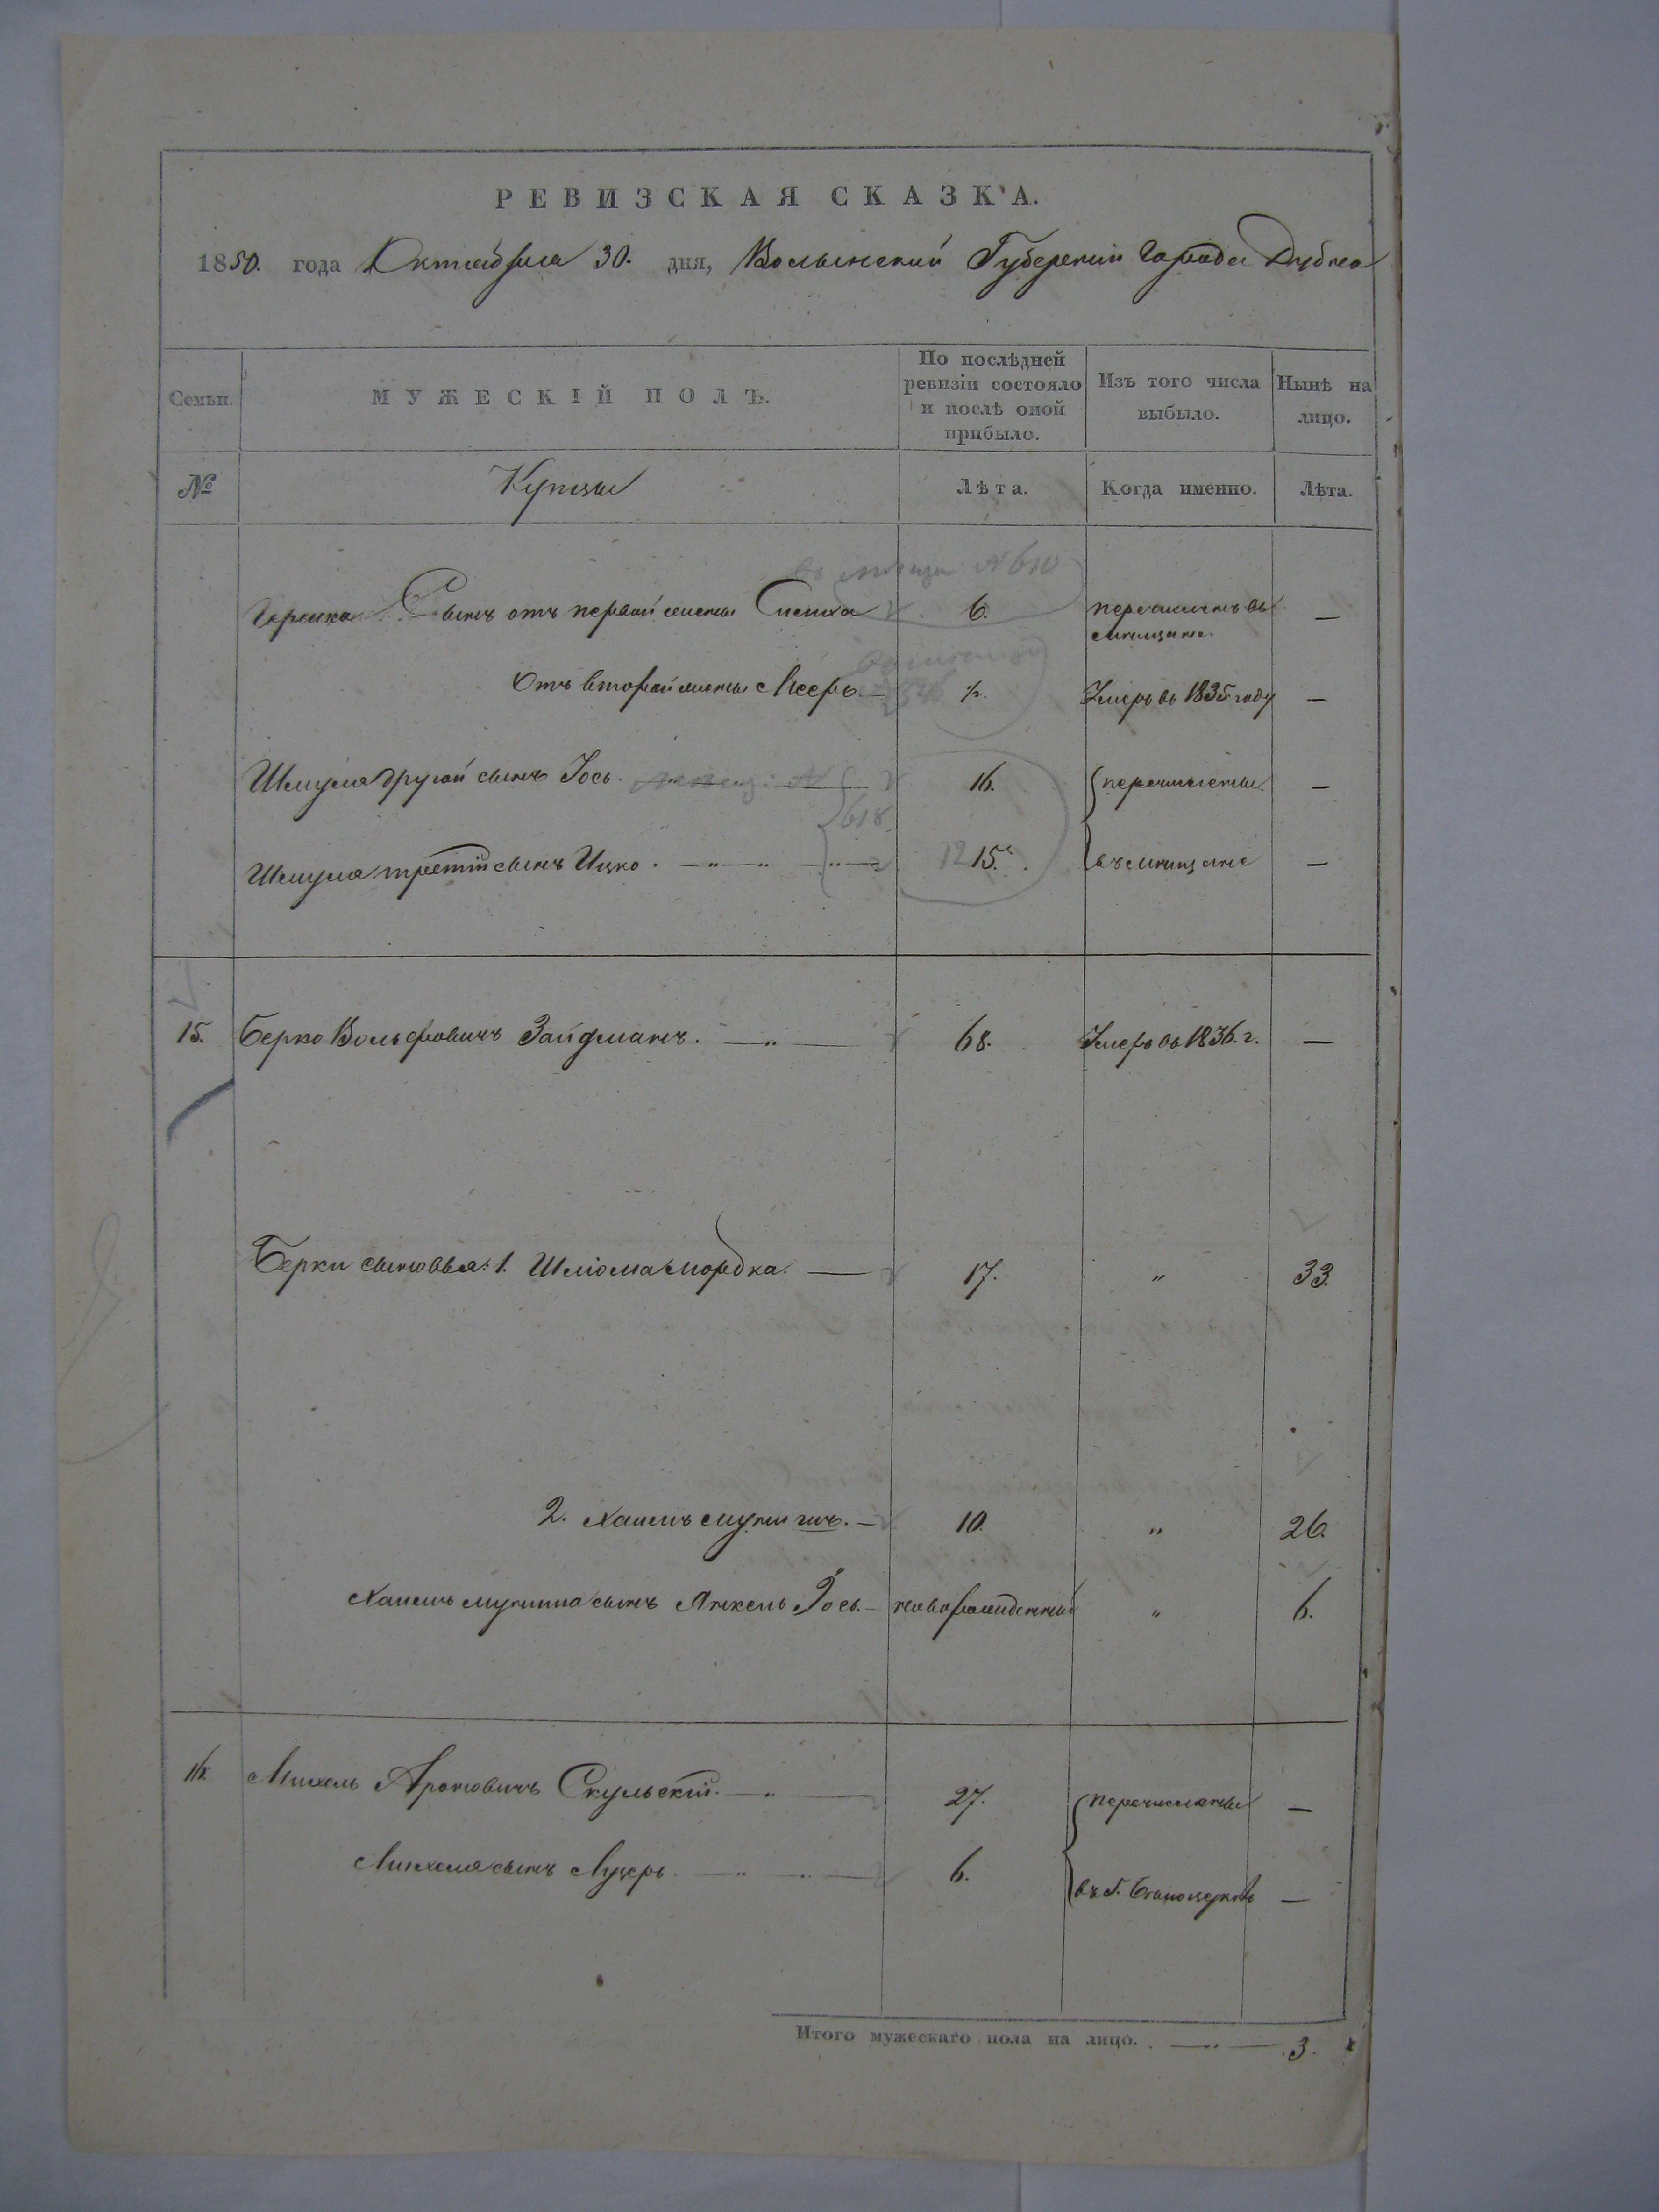 РЕВИЗСКАЯ СКАЗКА.
1850. года Октября 30. дня, Волынской Губернии Города Дубно
Семьи.
МУЖЕСКІЙ ПОЛЪ.
По послѣдней ревизіи состояло и послѣ оной прибыло.
Изъ того числа выбыло.
Нынѣ на лицо.
№
Купцы
Лѣта.
Когда именно.
Лѣта.
№ 610
Гершка Сынъ отъ первой жены Симха 6. перечисленъ въ мещане. —
Отъ второй жены Мееръ. — ½. Умеръ въ 1835 году —
Шмуля другой сынъ Іось. 16. перечислены —
618
Шмуля третій сынъ Ицко. — " — " — " — 12 15. въ мещане —
15. Берко Вольфовичъ Зайдманъ. — " — 68. Умеръ въ 1836. г. —
Берки сыновья: 1. Шлiома Мордка. — 17. " 33.
2. Хаимъ Мунишъ. — 10. " 26.
Хаимъ Муниша сынъ Анкель Іось. — новорожденный " 6.
16. Михель Ароновичъ Скульскій. — " — 27. перечислены —
Михеля сынъ Луцеръ. — " — " — 6. въ г. —
Итого мужескаго пола на лицо. . — " — 3.